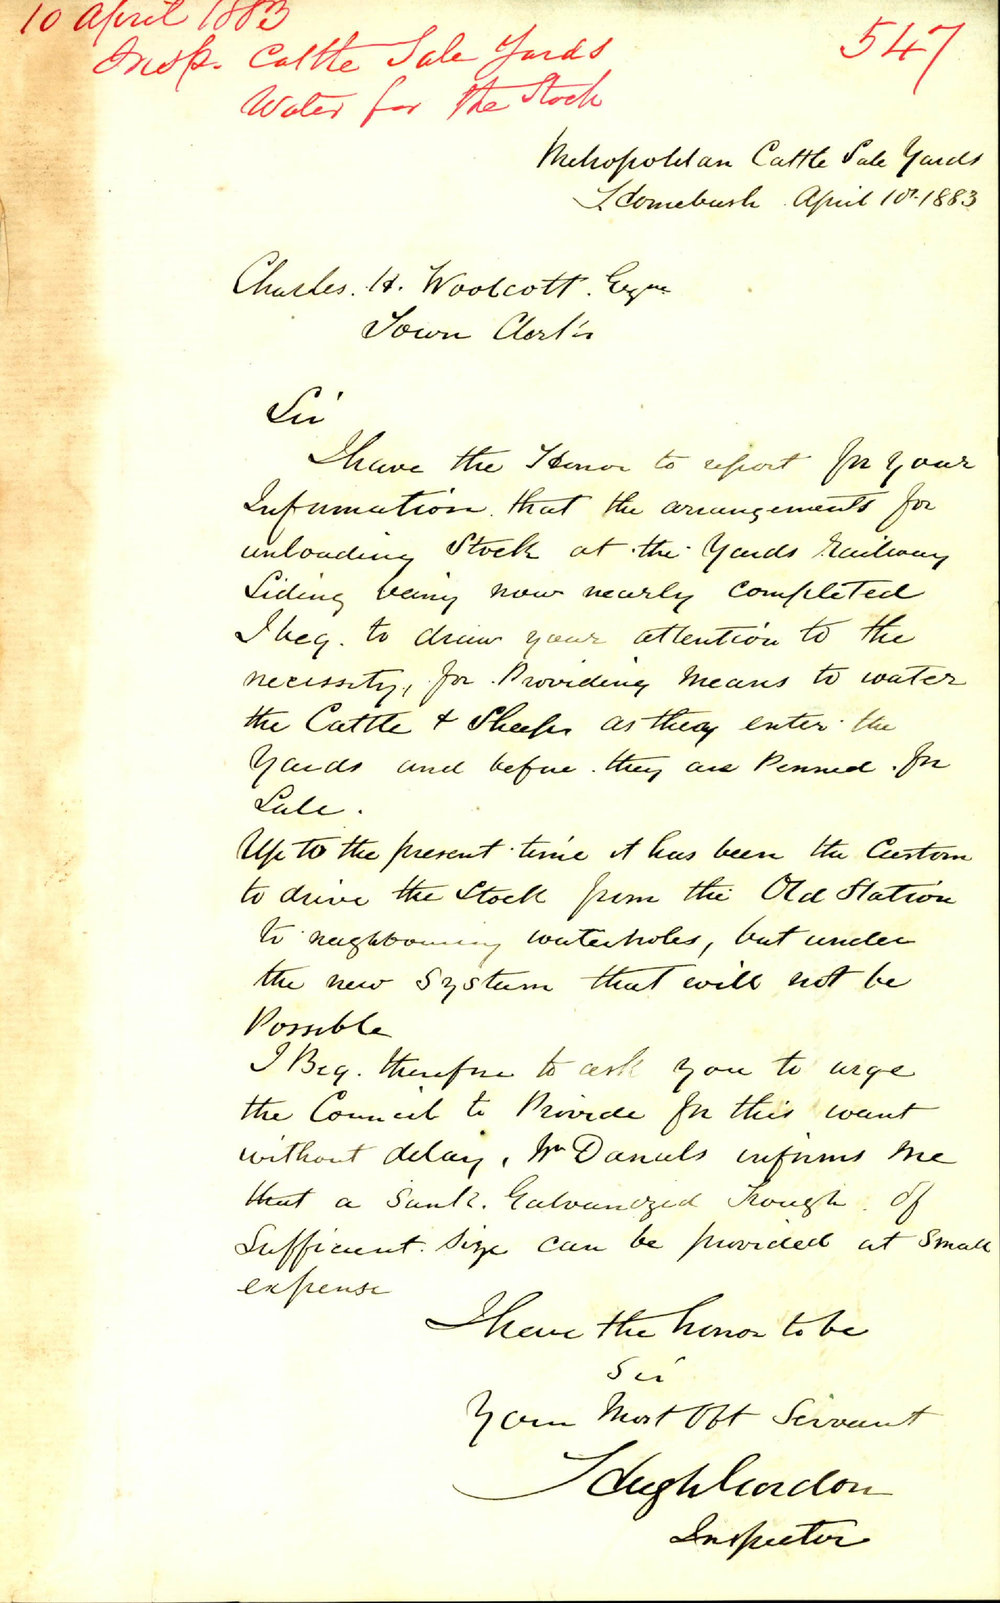 10 April 1883
547
Insp. Cattle Sale Yards
Water for the Stock
Metropolitan Cattle Sale Yards
Homebush April 10th 1883
Charles. H. Woolcott. Esqre
Town Clerk
Sir
I have the Honor to report for your
Information that the arrangements for
unloading Stock at the Yards Railway
Siding being now nearly completed
I beg. to draw your attention to the
necessity, for Providing Means to water
the Cattle & Sheep as they enter the
Yards and before they are Penned for
Sale.
Up to the present time it has been the Custom
to drive the Stock from the Old Station
to neighbouring waterholes, but under
the new System that will not be
Possible
I Beg. therefore to ask you to urge
the Council to Provide for this want
without delay, Mr Daniels informs Me
that a Sunk. Galvanized Trough of
Sufficient Size can be provided at Small
expense
I have the honor to be
Sir
Your Most Obt Servant
Hugh Gordon
Inspector